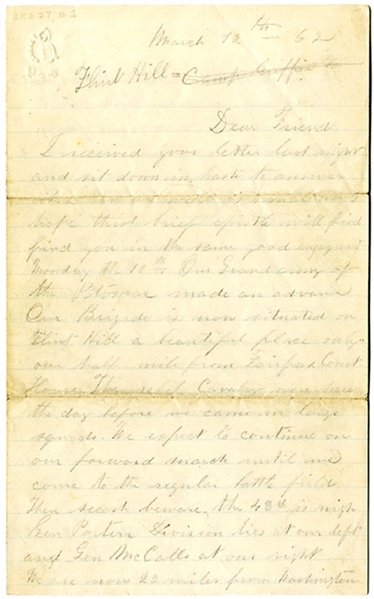 March 12th 62
Flint Hill = Camp Griffin
Dear Friend
I received your letter last night
and sit down in haste to answer
hope this brief epistle will find
find you in the same good enjoyment
Monday the 10th Our Grand army of
the Potomac made an advance
Our Brigade is now situated on
Flint Hill a beautiful place only
one half mile from Fairfax Court
House. The rebel Cavalry were here
the day before we came in large
squads. We expect to continue on
our forward march until we
come to the regular battle field
Then secesh beware, the 43d is nigh
Gen Porters Division lies at our left
and Gen McCalls at our right
We are now 20 miles from Washington